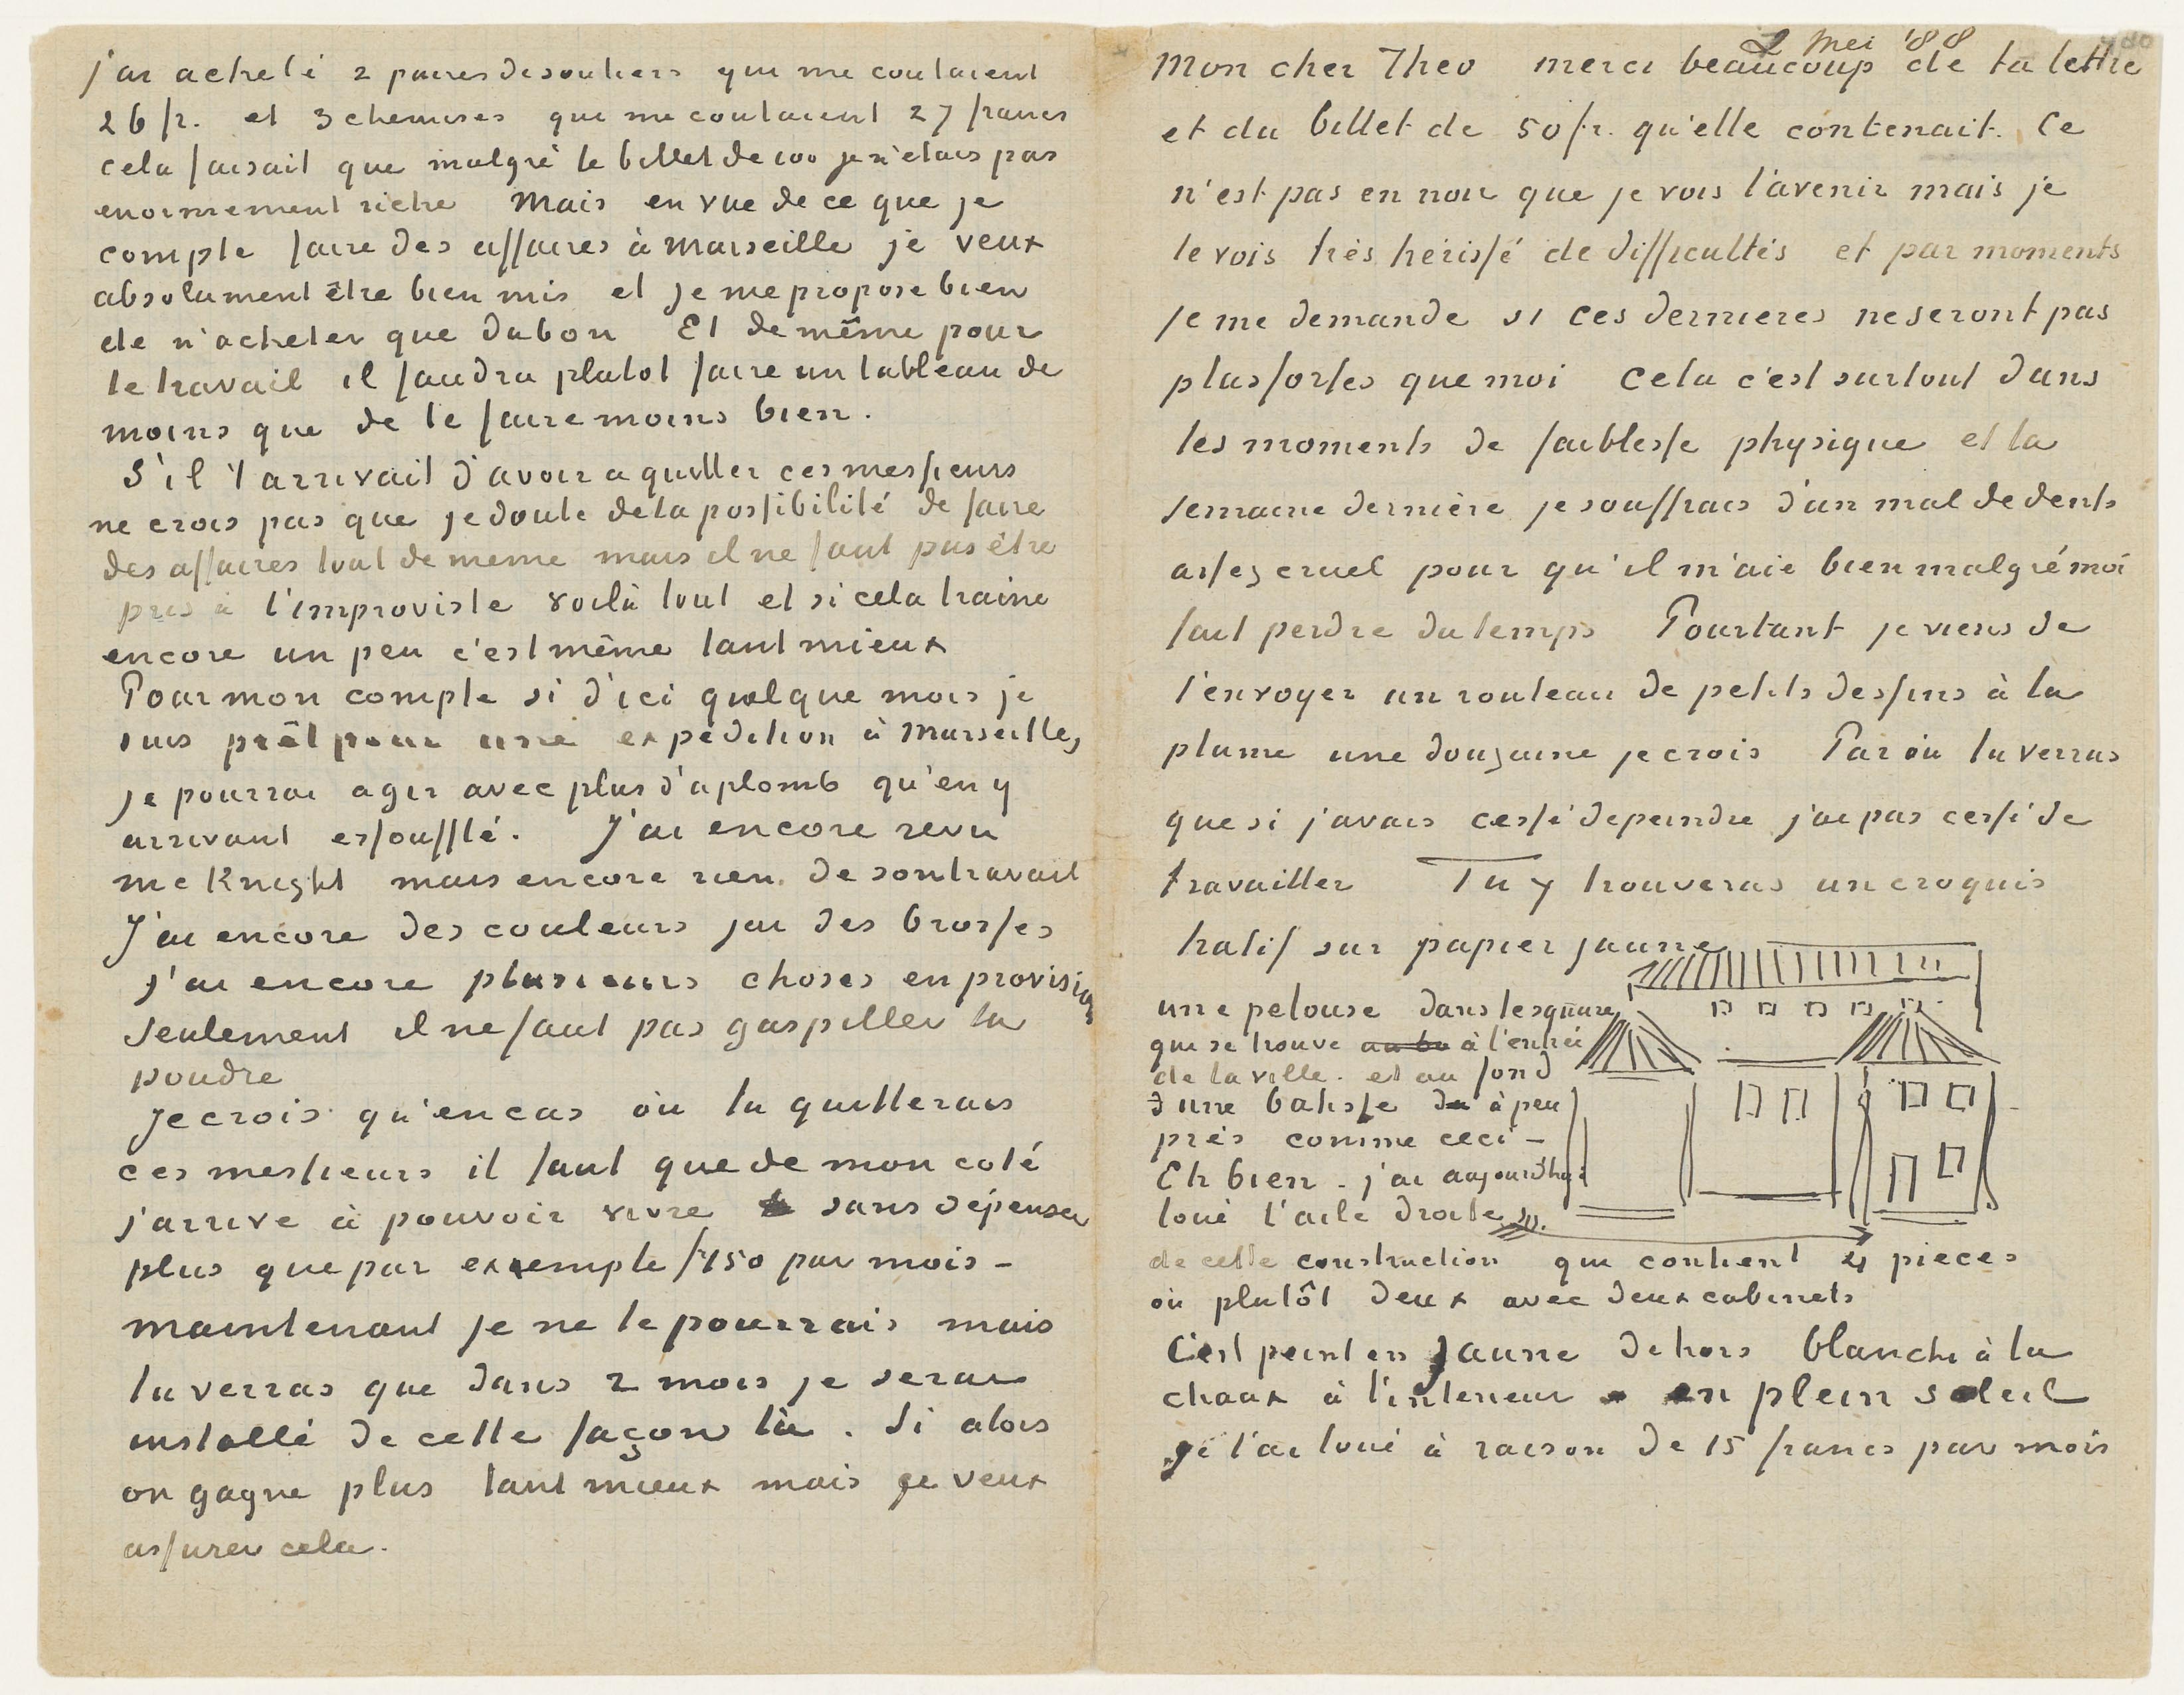 j'ai acheté 2 paires de souliers qui me coutaient
26 fr. et 3 chemises qui me coutaient 27 francs
cela faisait que malgré le billet de 100 je n'étais pas
enormement riche Mais en vue de ce que je
compte faire des affaires à Marseille je veux
absolument être bien mis et je me propose bien
de n'acheter que du bon Et de même pour
le travail il faudra plutot faire un tableau de
moins que de le faire moins bien.
S'il t'arrivait d'avoir a quitter ces messieurs
ne crois pas que je doute de la possibilité de faire
des affaires tout de meme mais il ne faut pas être
pris à l'improviste voilà tout et si cela traine
encore un peu c'est même tant mieux
Pour mon compte si d'ici quelque mois je
suis prêt pour une expedition à Marseille,
je pourrai agir avec plus d'aplomb qu'en y
arrivant essoufflé. J'ai encore revu
mcKnight mais encore rien de son travail
J'ai encore des couleurs j'ai des brosses
j'ai encore plusieurs choses en provision
Seulement il ne faut pas gaspiller la
poudre
Je crois qu'en cas où tu quitterais
ces messieurs il faut que de mon coté
j'arrive à pouvoir vivre sans dépenser
plus que par exemple fr 150 par mois –
maintenant je ne le pourrais mais
tu verras que dans 2 mois je serai
installé de cette façon là. Si alors
on gagne plus tant mieux mais je veux
assurer cela.
2 Mei '88
Mon cher Theo merci beaucoup de ta lettre
et du billet de 50 fr. qu'elle contenait. Ce
n'est pas en noir que je vois l'avenir mais je
le vois très hérissé de difficultés et par moments
je me demande si ces dernieres ne seront pas
plus fortes que moi Cela c'est surtout dans
les moments de faiblesse physique et la
semaine dernière je souffrais d'un mal de dents
assez cruel pour qu'il m'aie bien malgré moi
fait perdre du temps Pourtant je viens de
t'envoyer un rouleau de petits dessins à la
plume une douzaine je crois Par où tu verras
que si j'avais cessé de peindre j'ai pas cessé de
travailler Tu y trouveras un croquis
hatif sur papier jaune
une pelouse dans le square
qui se trouve à l'entrée
de la ville. et au fond
d'une batisse à peu
près comme ceci –
Eh bien – j'ai aujourd'hui
loué l'aile droite
de cette construction qui contient 4 pieces
ou plutôt deux avec deux cabinets
C'est peint en jaune dehors blanchi à la
chaux à l'interieur en plein soleil
je l'ai loué à raison de 15 francs par mois